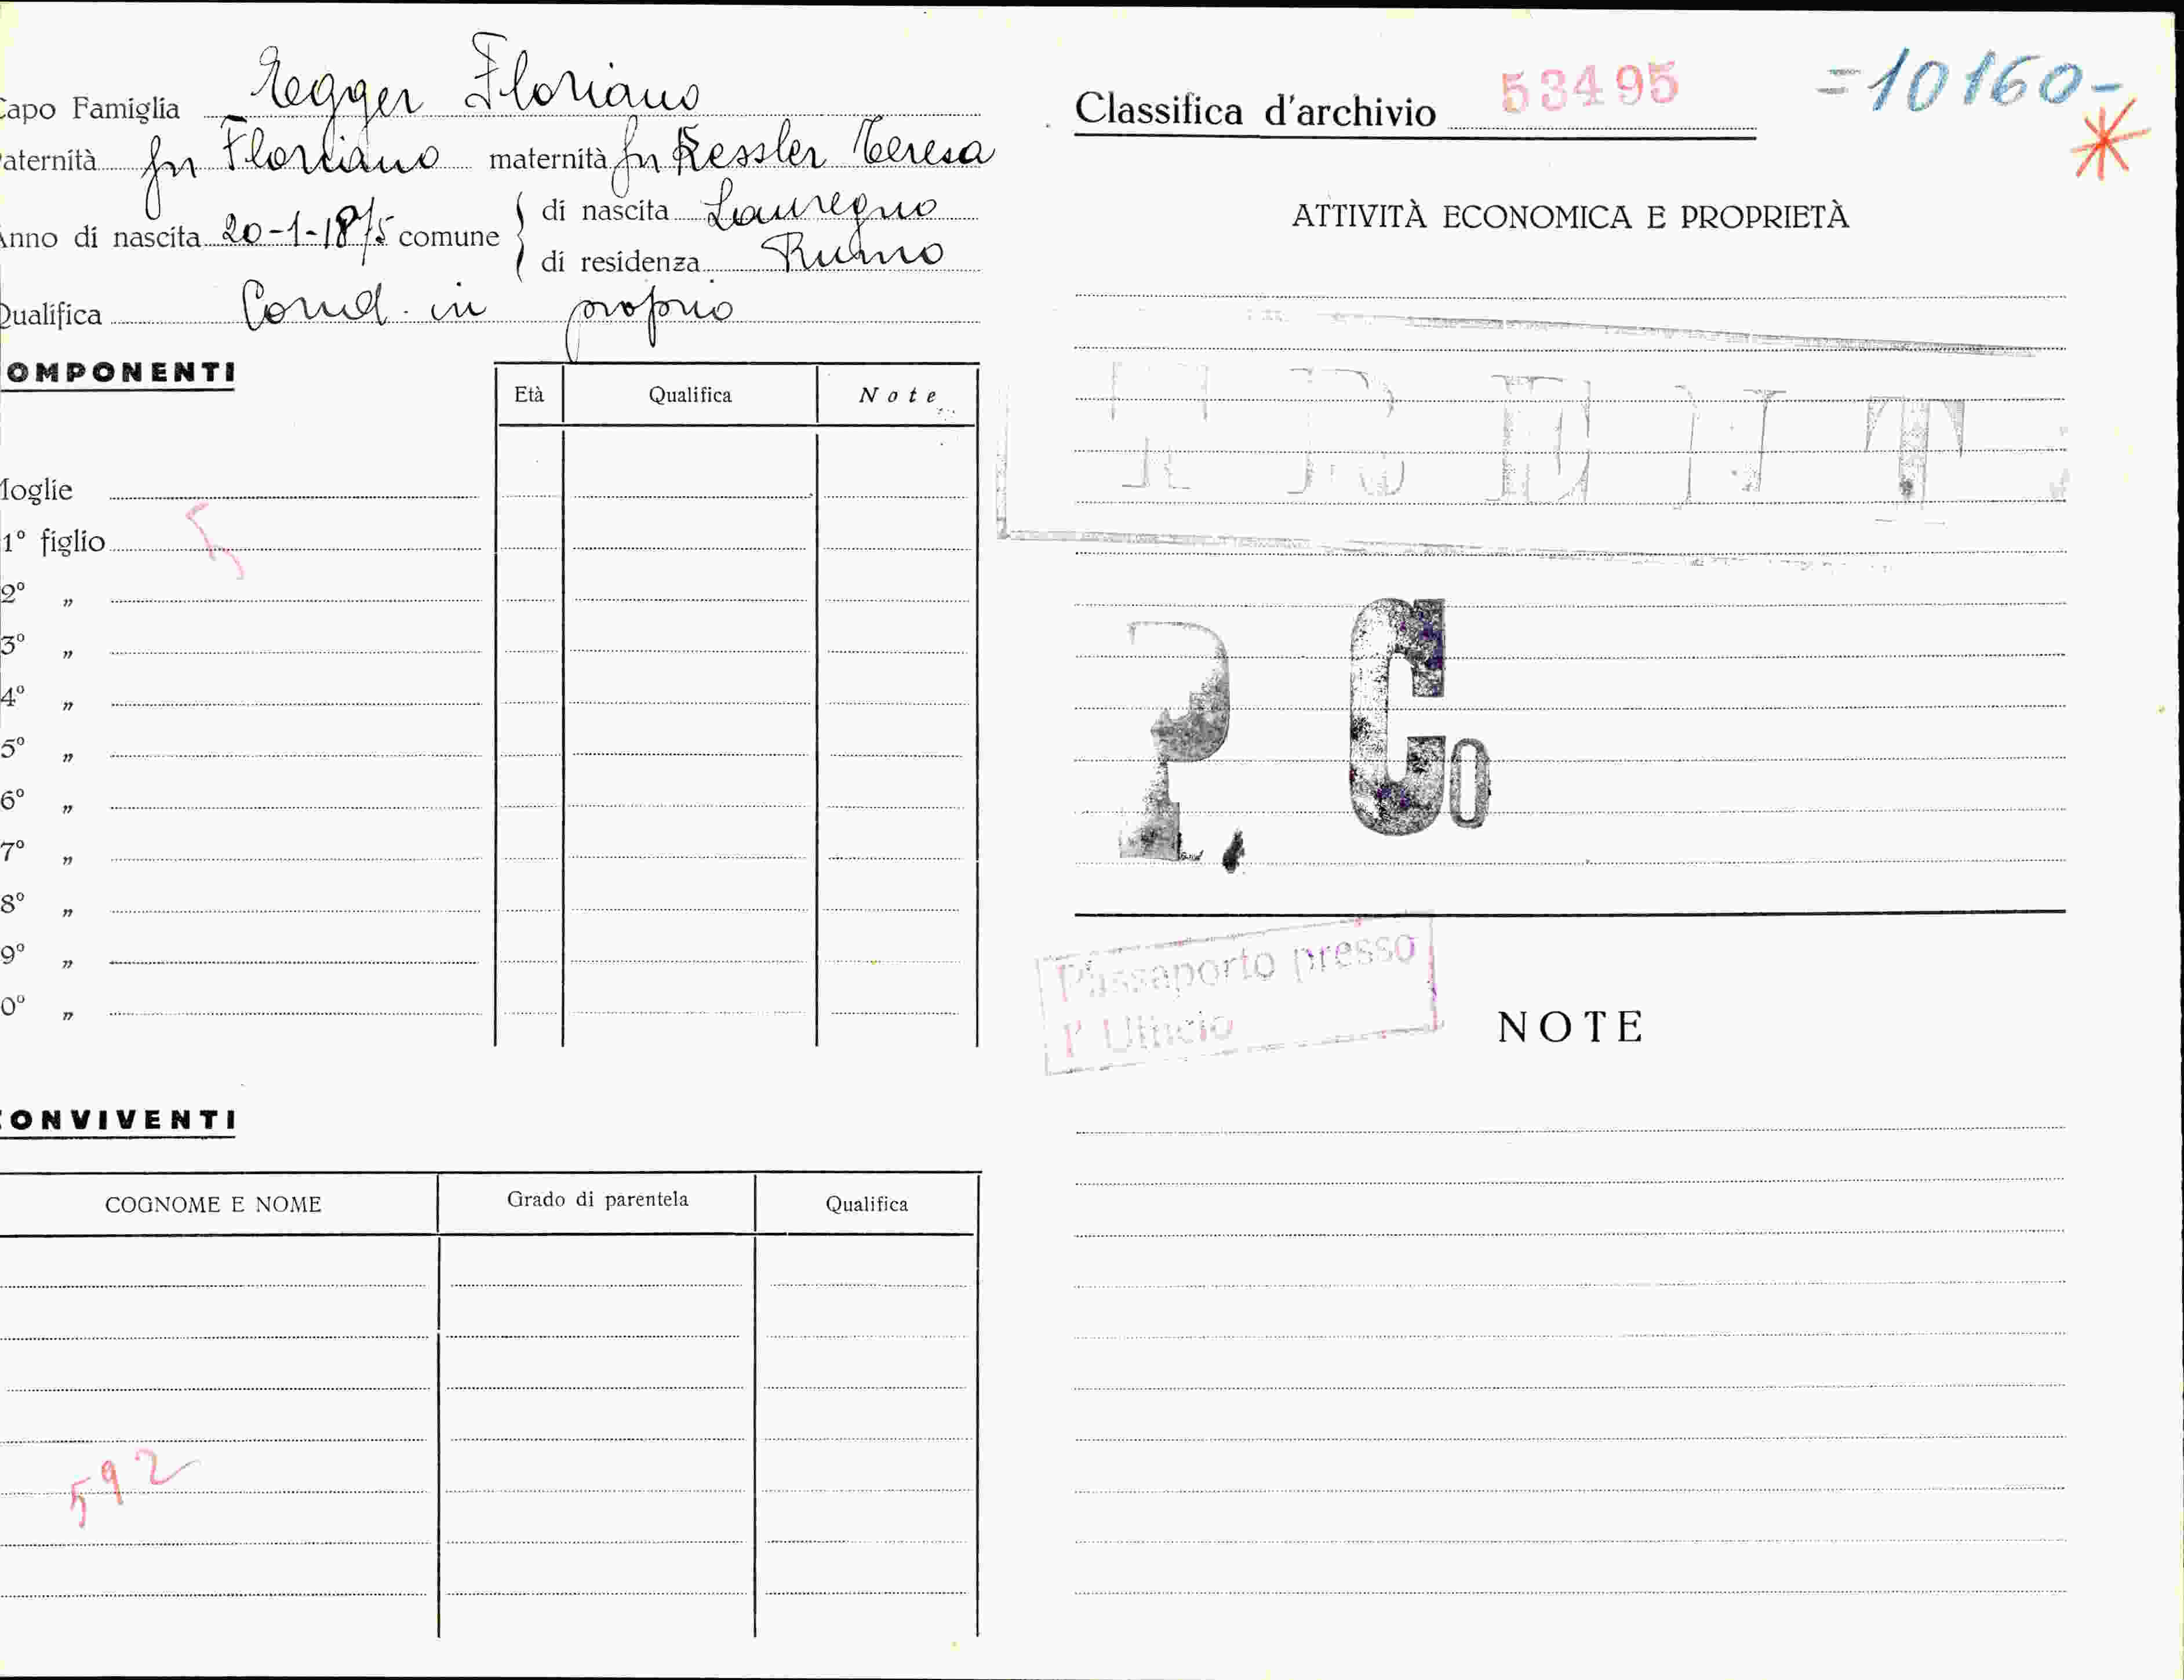 Capo Famiglia Egger Floriano
Paternità fu Floriano maternità fu Kessler Teresa
Anno di nascita 20-1-1875 comune di nascita Lauregno
di residenza Rumo
Qualifica Cond. in proprio
COMPONENTI
Età Qualifica Note
Moglie
1° figlio 5
2° „
3° „
4° „
5° „
6° „
7° „
8° „
9° „
10° „
CONVIVENTI
COGNOME E NOME Grado di parentela Qualifica
592
Classifica d'archivio 53495 =10160-
ATTIVITÀ ECONOMICA E PROPRIETÀ
P. Co
Passaporto presso
l'Ufficio
NOTE